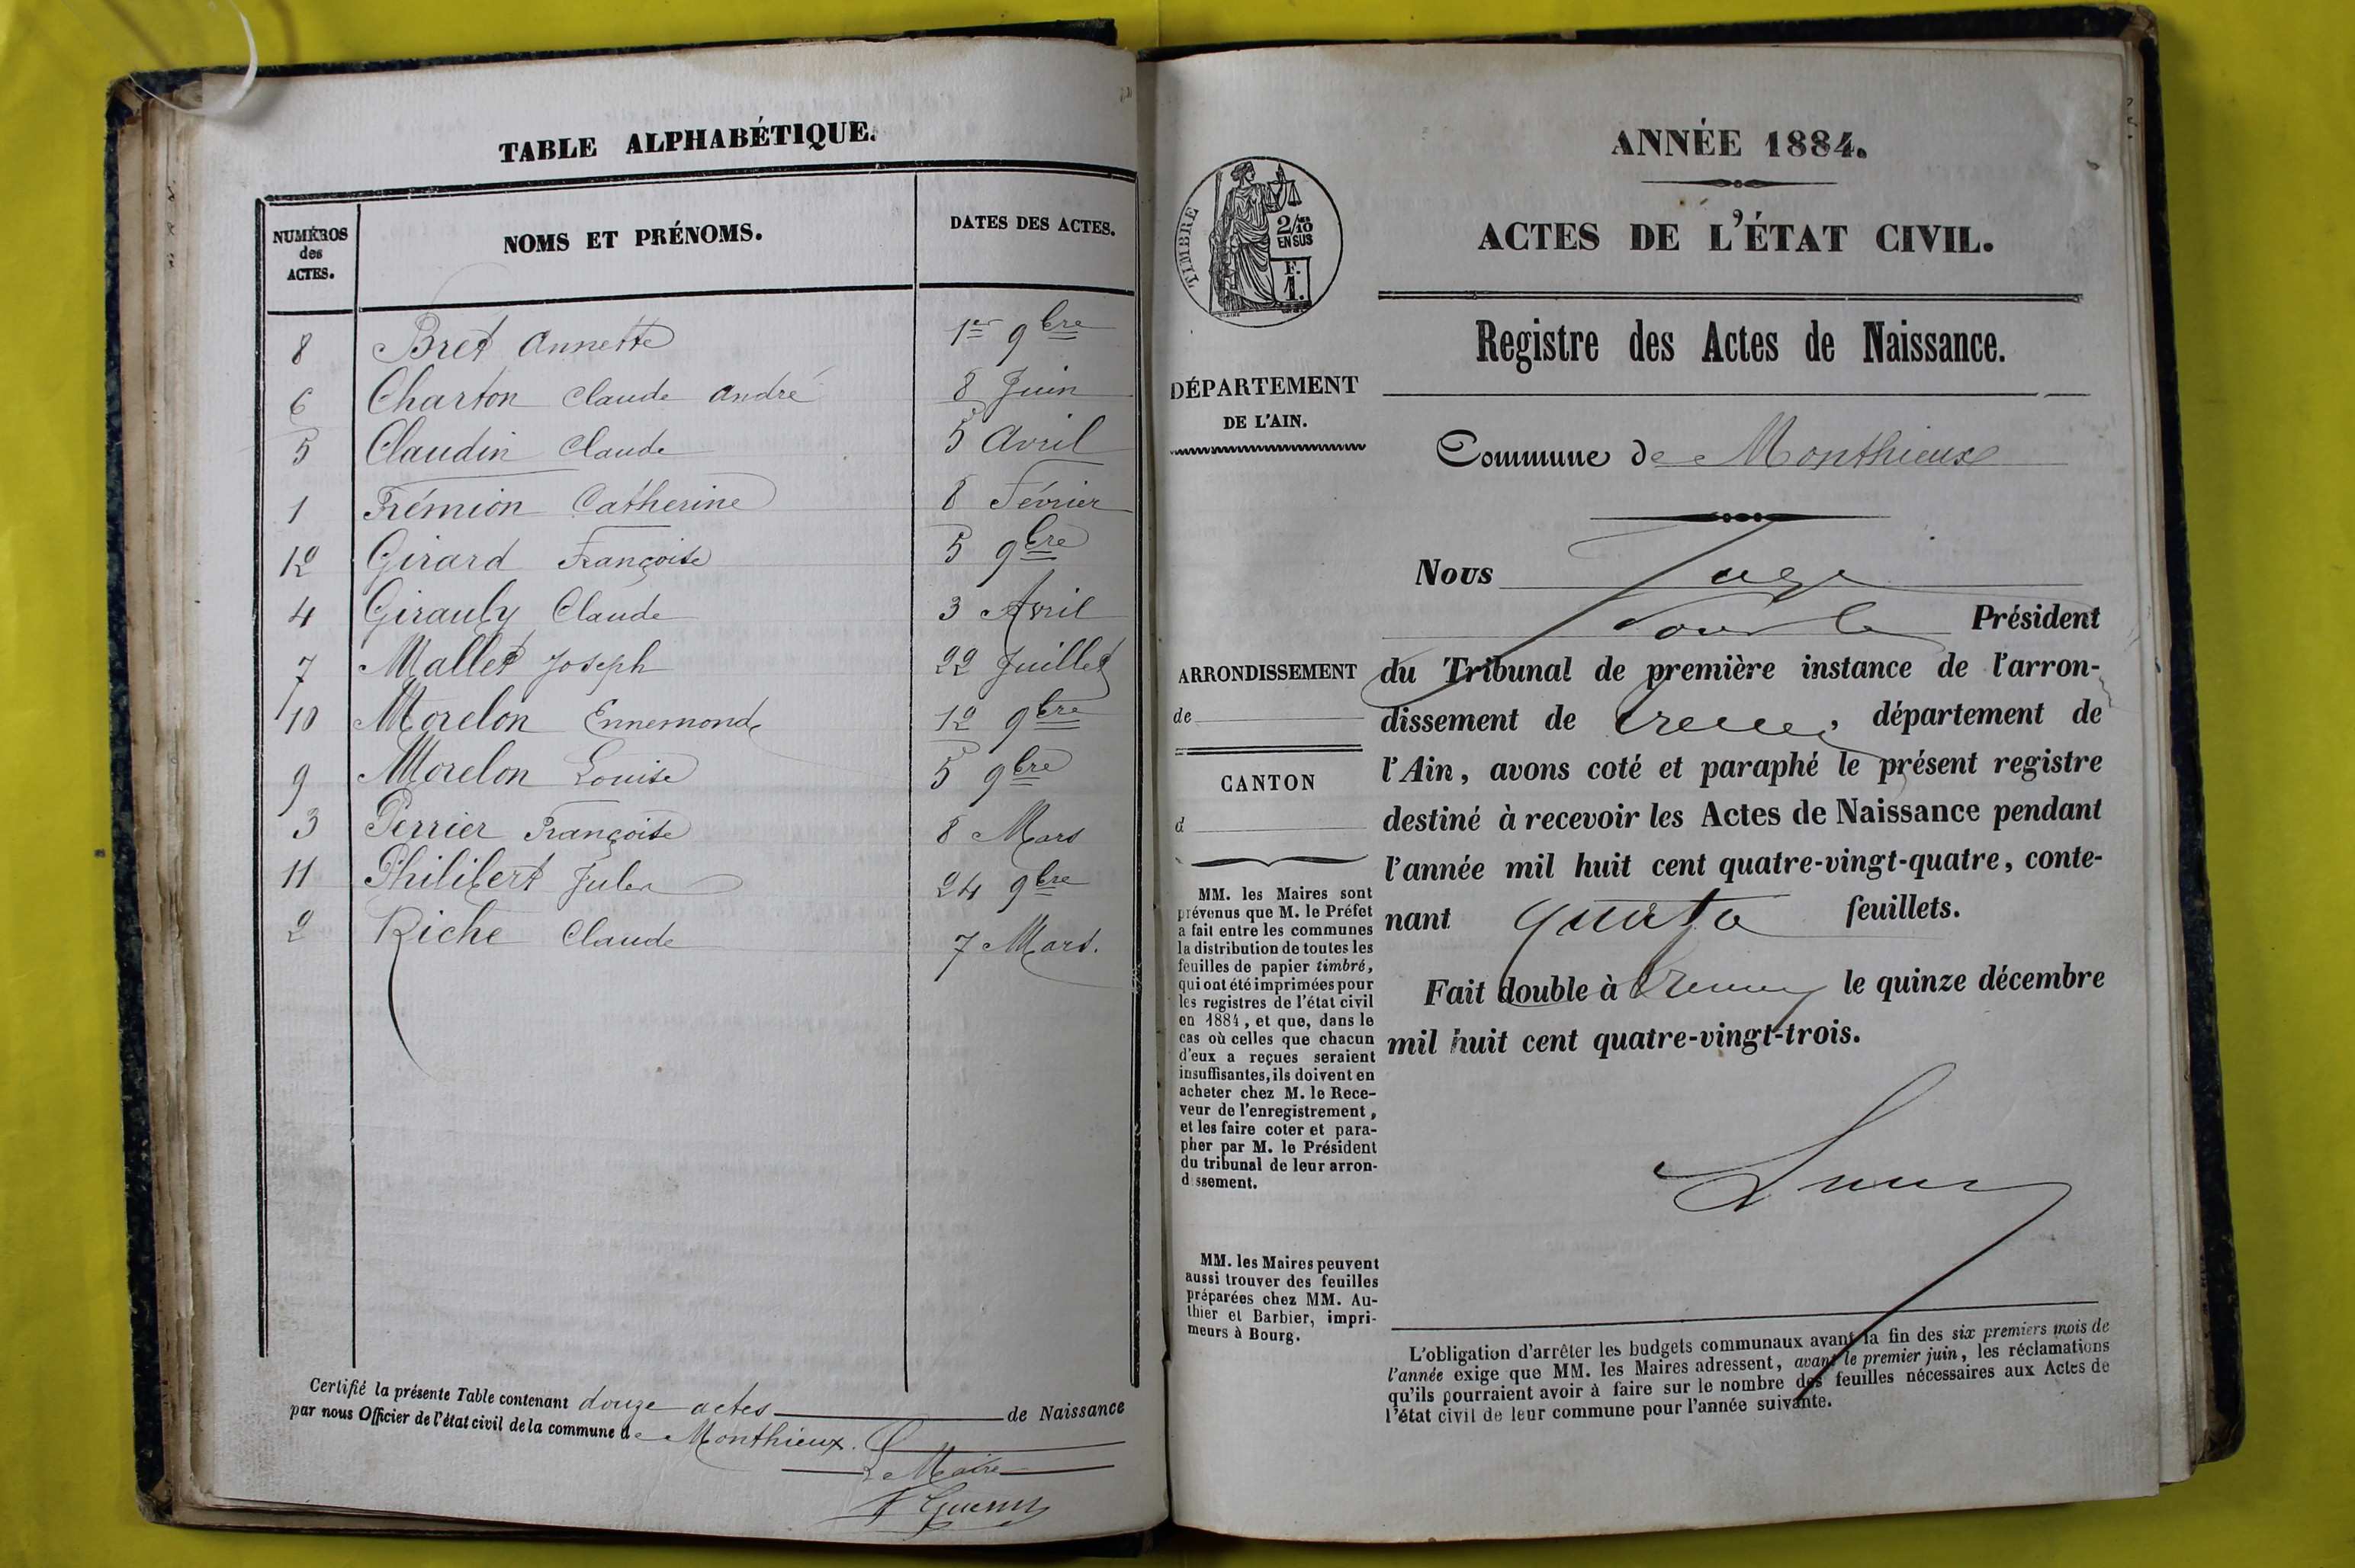 TABLE ALPHABÉTIQUE.
NUMÉROS des ACTES.
NOMS ET PRÉNOMS.
DATES DES ACTES.
8 Bret Annette 1er 9bre
6 Charton Claude André 8 Juin
5 Claudin Claude 5 Avril
1 Frémion Catherine 8 Février
12 Girard Françoise 5 9bre
4 Girauly Claude 3 Avril
7 Mallet Joseph 22 Juillet
10 Morelon Ennemond 12 9bre
9 Morelon Louise 5 9bre
3 Perrier Françoise 8 Mars
11 Philibert Jules 24 9bre
2 Riche Claude 7 Mars.
Certifié la présente Table contenant douze actes de Naissance
par nous Officier de l'état civil de la commune de Monthieux.
Le Maire
ANNÉE 1884.
ACTES DE L'ÉTAT CIVIL.
TIMBRE
2/10
EN SUS
F.
1.
Registre des Actes de Naissance.
DÉPARTEMENT
DE L'AIN.
Commune de Monthieux
ARRONDISSEMENT
de
CANTON
d
MM. les Maires sont
prévenus que M. le Préfet
a fait entre les communes
la distribution de toutes les
feuilles de papier timbré,
qui ont été imprimées pour
les registres de l'état civil
en 1884, et que, dans le
cas où celles que chacun
d'eux a reçues seraient
insuffisantes, ils doivent en
acheter chez M. le Rece-
veur de l'enregistrement,
et les faire coter et para-
pher par M. le Président
du tribunal de leur arron-
dissement.
MM. les Maires peuvent
aussi trouver des feuilles
préparées chez MM. Au-
thier et Barbier, impri-
meurs à Bourg.
Nous Juge
Président
du Tribunal de première instance de l'arron-
dissement de , département de
l'Ain, avons coté et paraphé le présent registre
destiné à recevoir les Actes de Naissance pendant
l'année mil huit cent quatre-vingt-quatre, conte-
nant feuillets.
Fait double à le quinze décembre
mil huit cent quatre-vingt-trois.
L'obligation d'arrêter les budgets communaux avant la fin des six premiers mois de
l'année exige que MM. les Maires adressent, avant le premier juin, les réclamations
qu'ils pourraient avoir à faire sur le nombre des feuilles nécessaires aux Actes de
l'état civil de leur commune pour l'année suivante.